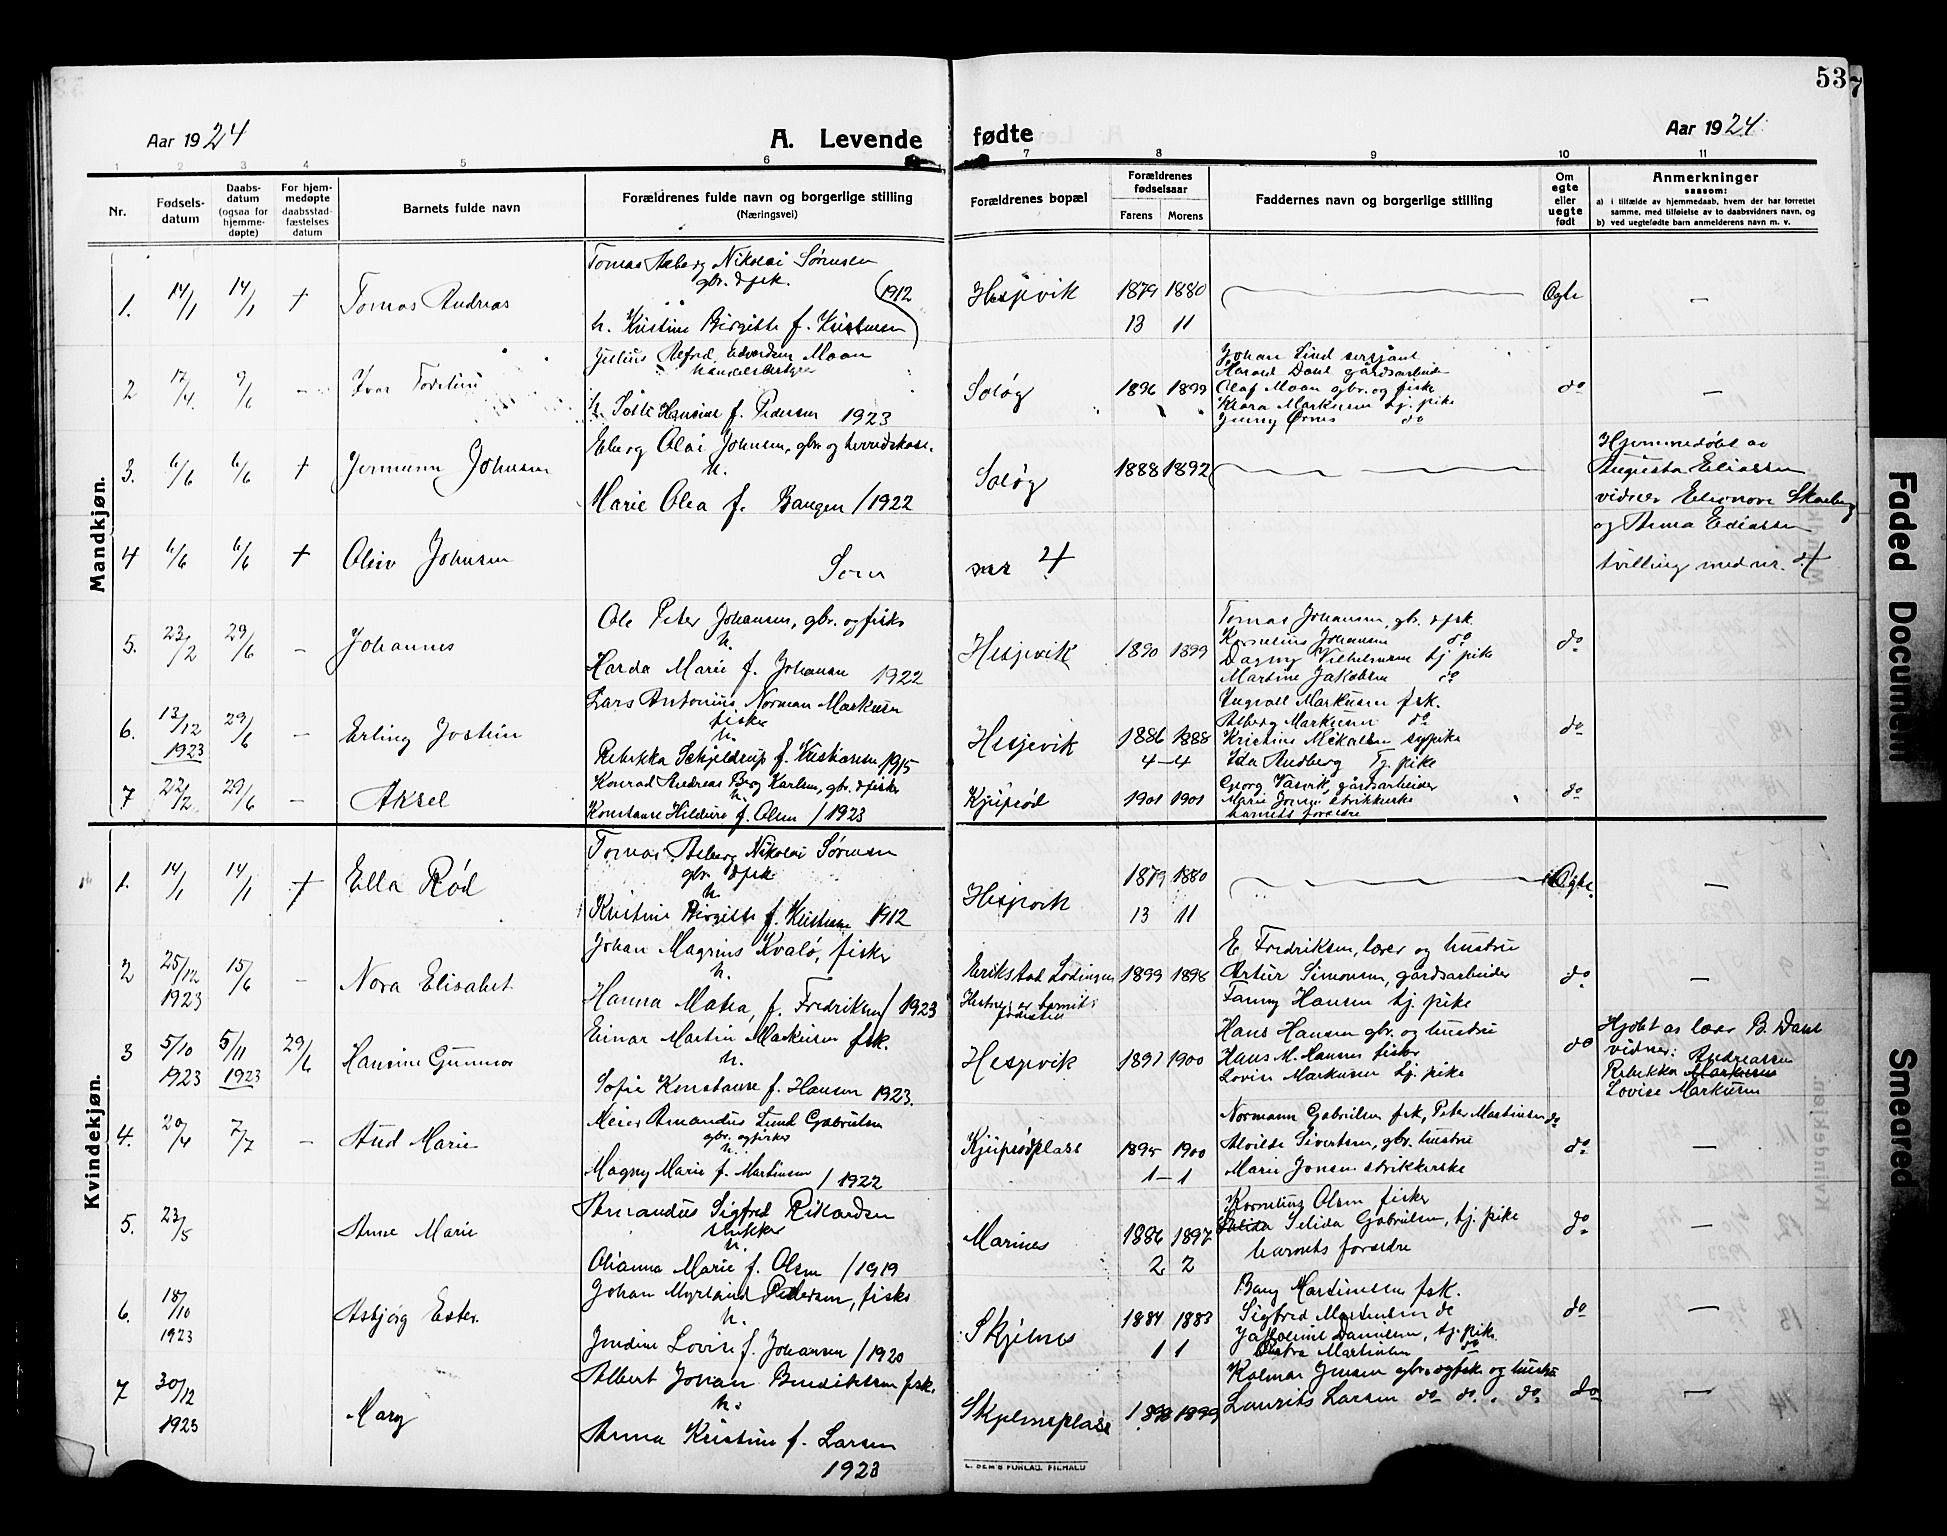 53
Aar 1924
A. Levende
fødte
Aar 1924
1 2 3 4 5 6 7 8 9 10 11
Nr.
Fødsels-
datum
Daabs-
datum
(ogsaa for
hjemme-
døpte)
For hjem-
medøpte
daabsstad-
fæstelses
datum
Barnets fulde navn
Forældrenes fulde navn og borgerlige stilling
(Næringsvei)
Forældrenes bopæl
Forældrenes
fødselsaar
Farens
Morens
Faddernes navn og borgerlige stilling
Om
egte
eller
uegte
født
Anmerkninger
saasom:
a) i tilfælde av hjemmedaab, hvem der har forrettet
samme, med tilføielse av to daabsvidners navn, og
b) ved uegtefødte barn anmelderens navn m. v.
Mandkjøn.
1. 14/1 14/1 + Tomas Andreas
Tomas Asberg Nikolai Sørensen
gbr. & fsk.
(1912
h. Kristine Birgitte f. Kristensen
Hesjevik 1879 1880 Ægte —
13 11
2 17/4 9/6 – Ivar Torstein
Julius Alfred Edvardsen Moan
handelsbestyrer
h. Sofie Hansine f. Pedersen 1923
Soløy 1896 1899
Johan Lind sersjant
Harald Dahl gårdsarbeider
Olaf Moan gbr. og fisker
Klara Markussen tj. pike
Jenny Ørnes do
do —
3. 6/6 6/6 + Jermann Johnsen
Eberg Olai Johnsen, gbr. og herredskass.
h.
Marie Olea f. Bangen / 1922
Soløy 1888 1892
Hjemmedøbt av
Augusta Eliassen
vidner Eleonore Skarberg
og Anna Eliassen
4 6/6 6/6 + Oliv Johnsen
Som nr 4
tvilling med nr. 4
5. 23/2 29/6 – Johannes
Ole Peter Johansen, gbr. og fisker
h.
Harda Marie f. Johansen 1922
Hesjevik 1890 1899
Tomas Johansen, gbr. & fsk.
Kornelius Johansen do
Dagny Vilhelmsen tj. pike
Martine Jakobsen do
do
6. 13/12 1923 29/6 – Erling Jostein
Lars Antonius Norman Markussen
fisker
h.
Rebekka Schjeldrup f. Kristiansen 1915
Hesjevik 1886 1888
4–4
Ingvall Markussen fsk.
Asberg Markussen do
Kristine Mikalsen sypike
Ida Rudberg Tj. pike
do
7 22/2 29/6 – Aksel
Konrad Andreas Berg Karlsen, gbr. & fisker
h.
Konstanse Hildure f. Olsen / 1923
Kjipsød 1901 1901
Georg Vasvik, gårdsarbeider
Marie Jonsen strikkerske
barnets forældre
do
Kvindekjøn.
1. 14/1 14/1 + Ella Rød
Tomas Asberg Nikolai Sørensen
gbr. & fsk
h.
Kristine Birgitte f. Kristensen 1912
Hesjevik 1879 1880 Ægte. —
13 11
2 25/12 1923 15/6 – Nora Elisabet
Johan Magnus Kvalø, fisker
h.
Hanna Matea, f. Fredriksen / 1923
Erikstad Lødingen 1899 1898
E Fredriksen, lærer og hustru
Artur Simonsen, gårdsarbeider
Fanny Hansen tj. pike
do —
3 5/10 1923 5/11 1923 29/6 Hansine Gunvor
Einar Martin Markussen fsk.
h.
Sofie Konstanse f. Hansen 1923.
Hesjevik 1897 1900
Hans Hansen gbr. og hustru
Hans M. Hansen fisker
Lovise Markussen tj. pike
do
Hjdbt av lærer B. Dahl
vidner: Andreassen
Rebekka Markussen
Lovise Markussen
4. 20/4 7/7 – Aud Marie
Meier Amandus Lund Gabrielsen
gbr. og fisker
h.
Magny Marie f. Martinsen / 1922
Kjipsødplass 1895 1900
1–1
Normann Gabrielsen fsk, Peter Martinsen do
Alvilde Sivertsen, gbr. hustru
Marie Jonsen strikkerske
do —
5. 23/5 Anne Marie
Amandus Sigfred Rikardsen
snikker
h.
Olianna Marie f. Olsen / 1919
Marines 1886 1897
2 2
Kornelius Olsen fisker
Selida Gabrielsen, tj. pike
barnets forældre
do —
6. 18/10 1923 Asbjørg Ester
Johan Myrland Pedersen, fisker
h.
Jendine Lovise f. Johansen / 1920
Skjelnes 1884 1883
1 1
Berg Martinussen fsk.
Sigfred Martinsen do
Jakobine Danielsen, tj. pike
Martinsen do
do —
7 30/12 1923 Mary
Albert Johan Bendiktsen fsk.
h.
Anna Kristine f. Larsen
1923
Skjelnesplass 1898 1899
Kolmar Jensen gbr. og fsk. og hustru
Laurits Larsen do do. . do
do —
Faded Document
Smeared